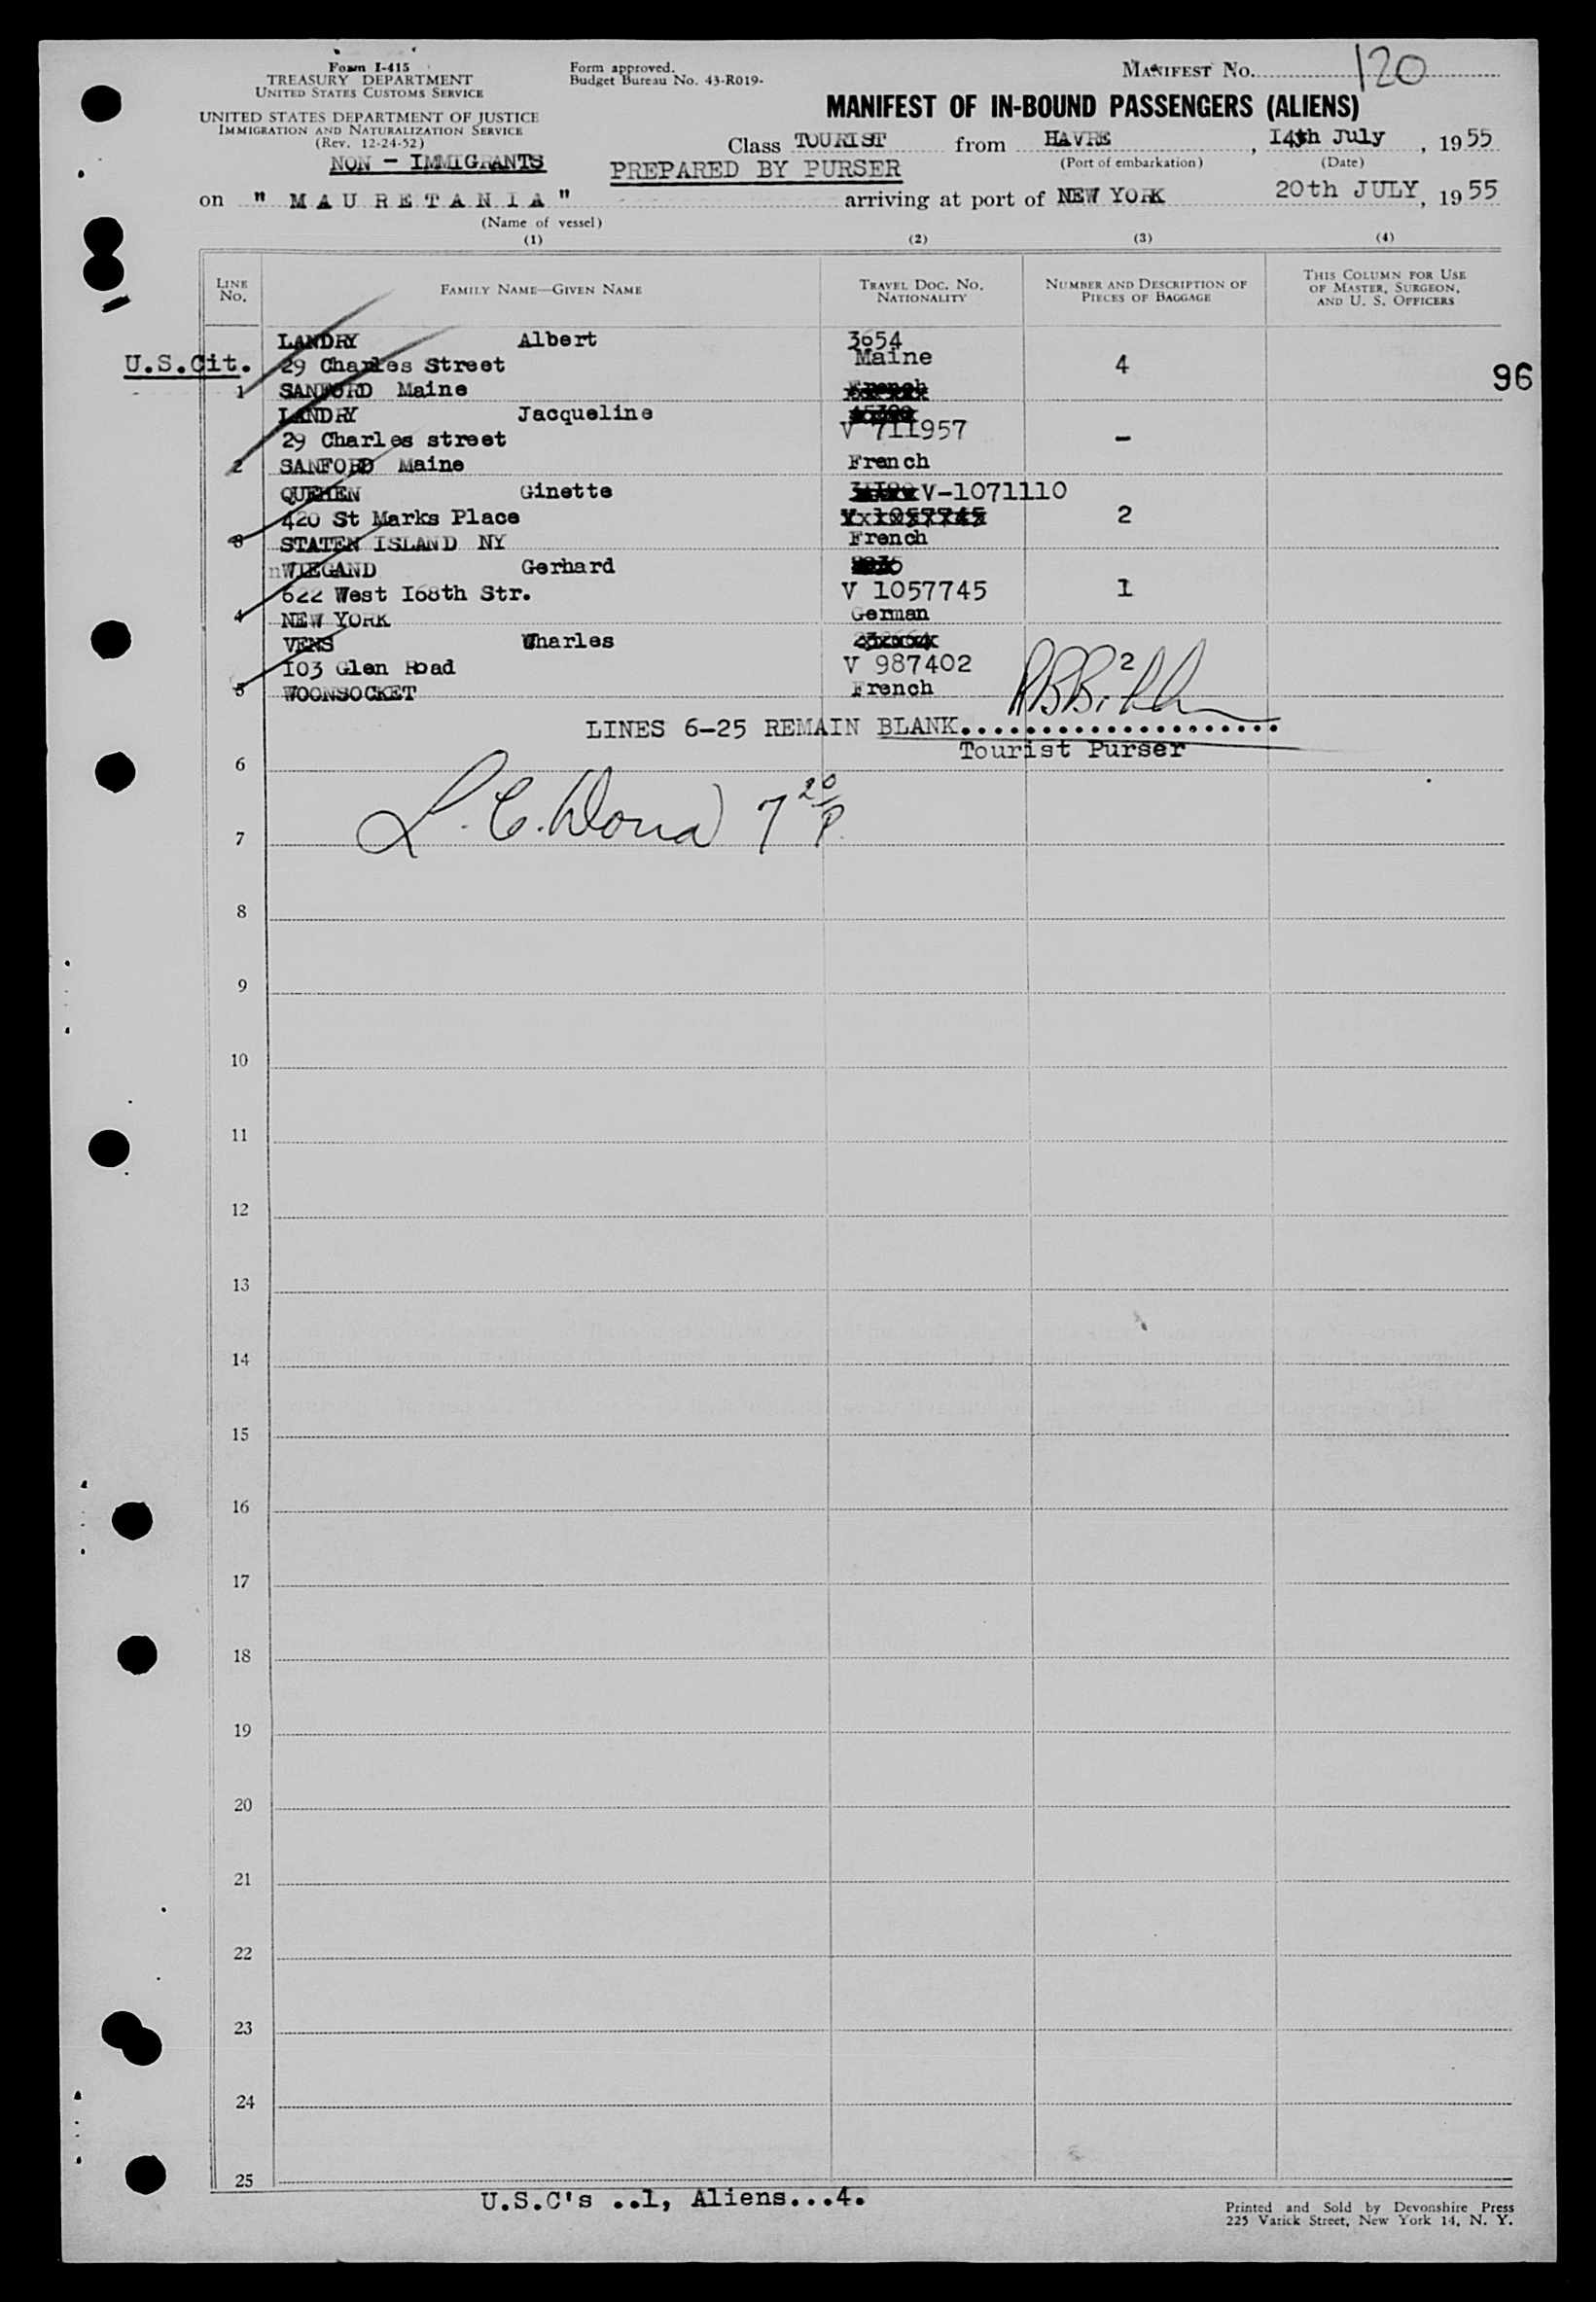 Form I-415
TREASURY DEPARTMENT
UNITED STATES CUSTOMS SERVICE
UNITED STATES DEPARTMENT OF JUSTICE
IMMIGRATION AND NATURALIZATION SERVICE
(Rev. 12-24-52)
NON - IMMIGRANTS
Form approved.
Budget Bureau No. 43-R019-
MANIFEST NO. 120
MANIFEST OF IN-BOUND PASSENGERS (ALIENS)
Class TOURIST from HAVRE, 14th July, 1955
(Port of embarkation) (Date)
PREPARED BY PURSER
on "MAURETANIA" arriving at port of NEW YORK 20th JULY, 1955
(Name of vessel)
(1) (2) (3) (4)
LINE NO. FAMILY NAME—GIVEN NAME TRAVEL DOC. NO. NATIONALITY NUMBER AND DESCRIPTION OF PIECES OF BAGGAGE THIS COLUMN FOR USE OF MASTER, SURGEON, AND U. S. OFFICERS
LANDRY Albert 3654
U.S.Cit. 29 Charles Street Maine 4 96
1 SANFORD Maine French
LANDRY Jacqueline
29 Charles street V 711957 -
2 SANFORD Maine French
QUEMEN Ginette V-1071110
420 St Marks Place V 1057745 2
3 STATEN ISLAND NY French
WIEGAND Gerhard
622 West 168th Str. V 1057745 1
4 NEW YORK German
VENS Charles
103 Glen Road V 987402 2
5 WOONSOCKET French
LINES 6-25 REMAIN BLANK....................
Tourist Purser
6
7
8
9
10
11
12
13
14
15
16
17
18
19
20
21
22
23
24
25
U.S.C's ..1, Aliens...4.
Printed and Sold by Devonshire Press
225 Varick Street, New York 14, N. Y.